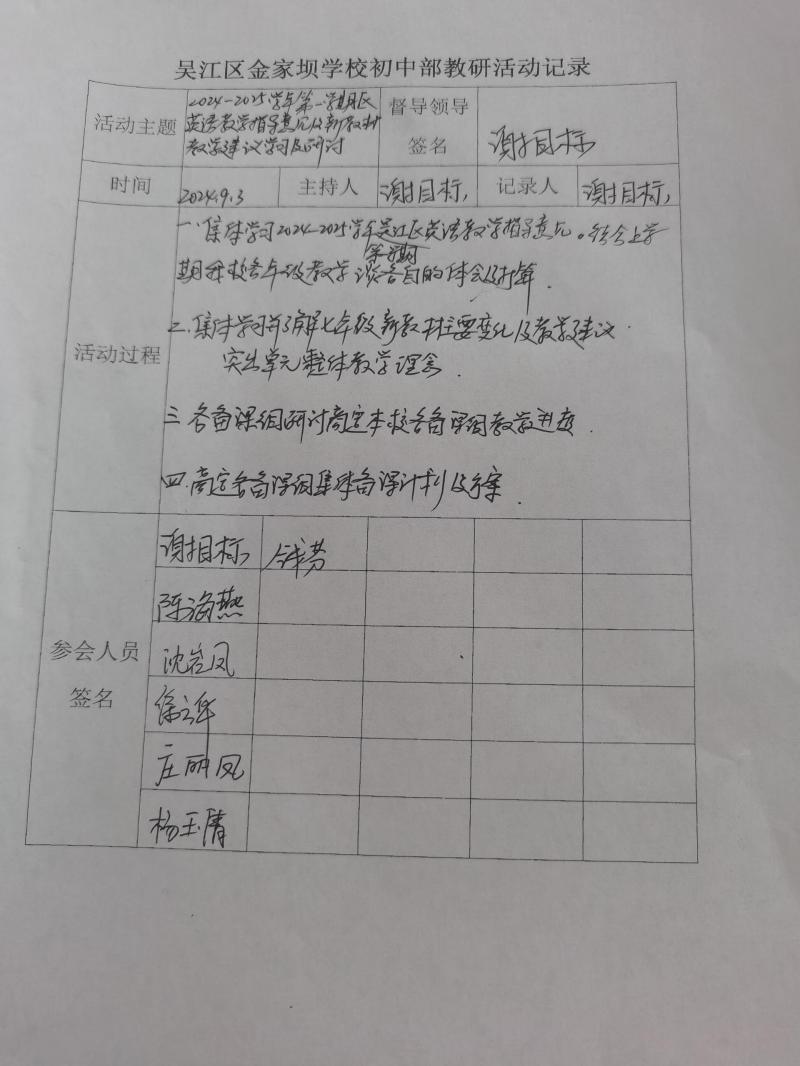 吴江区金家坝学校初中部教研活动记录
活动主题
2024-2025学年第一学期区
英语教学指导意见及新教材
教学建议学习及研讨
督导领导
签名
谢目标
时间
2024.9.3
主持人
谢目标
记录人
谢目标
活动过程
一.集体学习2024-2025学年吴江区英语教学指导意见。结合上学
期我校各年级教学 谈各自的体会及打算.
二.集体学习并了解七年级新教材主要变化及教学建议.
突出单元整体教学理念.
三.各备课组研讨商定本校各备课组教学进度.
四.商定各备课组集体备课计划及方案.
参会人员
签名
谢目标
钱芳
陈海燕
沈岩凤
庄丽凤
杨玉倩